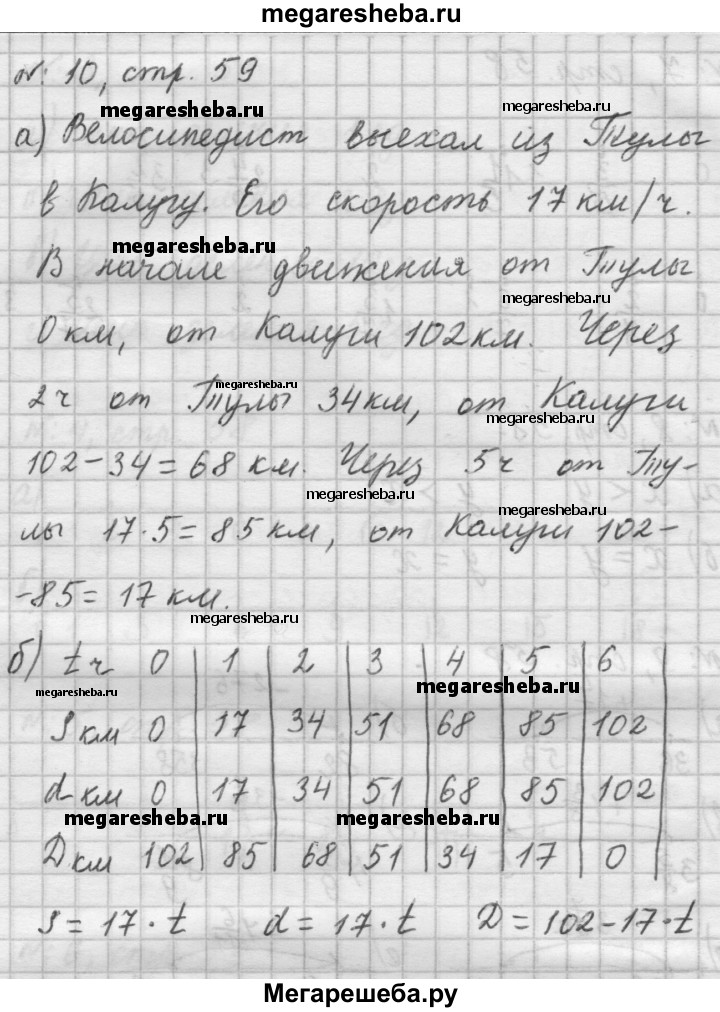 megaresheba.ru
№ 10, стр. 59
megaresheba.ru megaresheba.ru
а) Велосипедист выехал из Тулы
в Калугу. Его скорость 17 км/ч.
megaresheba.ru
В начале движения от Тулы
megaresheba.ru
0 км, от Калуги 102 км. Через
megaresheba.ru
2 ч от Тулы 34 км, от Калуги
megaresheba.ru
102 - 34 = 68 км. Через 5 ч от Ту-
megaresheba.ru megaresheba.ru
лы 17 · 5 = 85 км, от Калуги 102 -
- 85 = 17 км.
megaresheba.ru
б) t ч 0 1 2 3 4 5 6
megaresheba.ru megaresheba.ru
S км 0 17 34 51 68 85 102
d км 0 17 34 51 68 85 102
megaresheba.ru megaresheba.ru
D км 102 85 68 51 34 17 0
S = 17 · t d = 17 · t D = 102 - 17 · t
Мегарешеба.ру